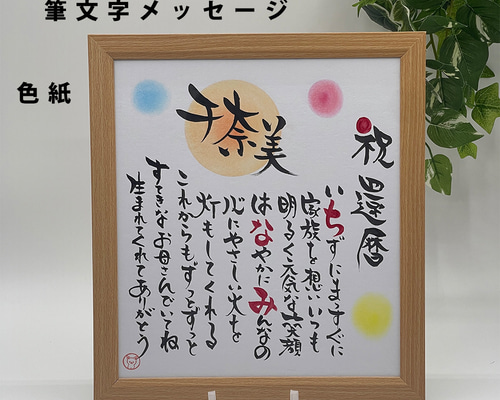 筆文字メッセージ
色紙
千奈美
祝 還暦
いちずにまっすぐに
家族を想いいつも
明るく元気な笑顔
はなやかにみんなの
心にやさしい火を
灯もしてくれる
これからもずっとずっと
すてきなお母さんでいてね
生まれてくれてありがとう